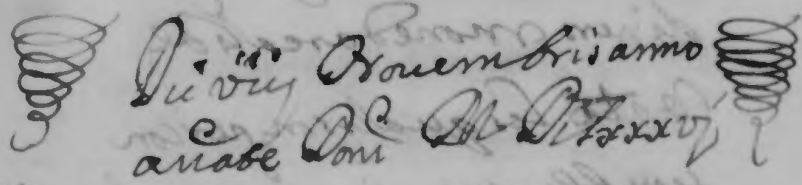 Die viij Nouembris anno
a nate Domi M D Lxxxvj